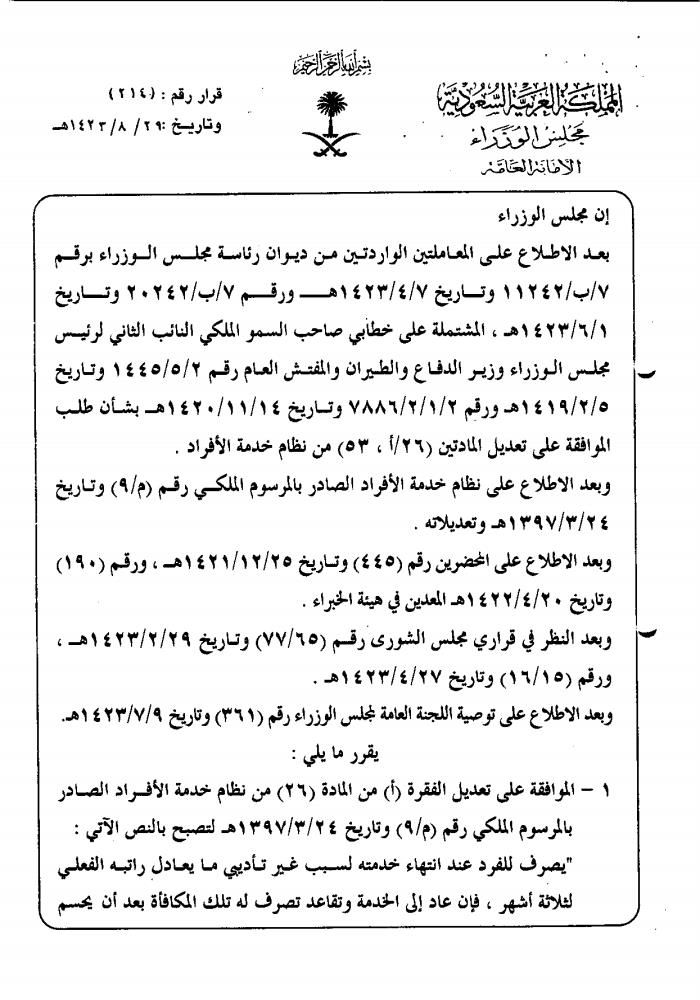 بسم الله الرحمن الرحيم
المملكة العربية السعودية
مجلس الوزراء
الأمانة العامة
قرار رقم : (٢١٤)
وتاريخ :٢٩/ ٨/ ١٤٢٣هـ
إن مجلس الوزراء
بعد الاطلاع على المعاملتين الواردتين من ديوان رئاسة مجلس الوزراء برقم
٧/ب/١١٢٤٢ وتاريخ ١٤٢٣/٤/٧هـ ورقم ٧/ب/٢٠٢٤٢ وتاريخ
١٤٢٣/٦/١هـ ، المشتملة على خطابي صاحب السمو الملكي النائب الثاني لرئيس
مجلس الوزراء وزير الدفاع والطيران والمفتش العام رقم ١٤٤٥/٥/٢ وتاريخ
١٤١٩/٢/٥هـ ورقم ٧٨٨٦/٢/١/٢ وتاريخ ١٤٢٠/١١/١٤هـ بشأن طلب
الموافقة على تعديل المادتين (٢٦/أ ، ٥٣) من نظام خدمة الأفراد .
وبعد الاطلاع على نظام خدمة الأفراد الصادر بالمرسوم الملكي رقم (م/٩) وتاريخ
١٣٩٧/٣/٢٤هـ وتعديلاته .
وبعد الاطلاع على المحضرين رقم (٤٤٥) وتاريخ ١٤٢١/١٢/٢٥هـ ، ورقم (١٩٠)
وتاريخ ١٤٢٢/٤/٢٠هـ المعدين في هيئة الخبراء .
وبعد النظر في قراري مجلس الشورى رقم (٧٧/٦٥) وتاريخ ١٤٢٣/٢/٢٩هـ ،
ورقم (١٦/١٥) وتاريخ ١٤٢٣/٤/٢٧هـ .
وبعد الاطلاع على توصية اللجنة العامة لمجلس الوزراء رقم (٣٦١) وتاريخ ١٤٢٣/٧/٩هـ.
يقرر ما يلي :
١ – الموافقة على تعديل الفقرة (أ) من المادة (٢٦) من نظام خدمة الأفراد الصادر
بالمرسوم الملكي رقم (م/٩) وتاريخ ١٣٩٧/٣/٢٤هـ لتصبح بالنص الآتي :
"يصرف للفرد عند انتهاء خدمته لسبب غير تأديبي ما يعادل راتبه الفعلي
لثلاثة أشهر ، فإن عاد إلى الخدمة وتقاعد تصرف له تلك المكافأة بعد أن يحسم